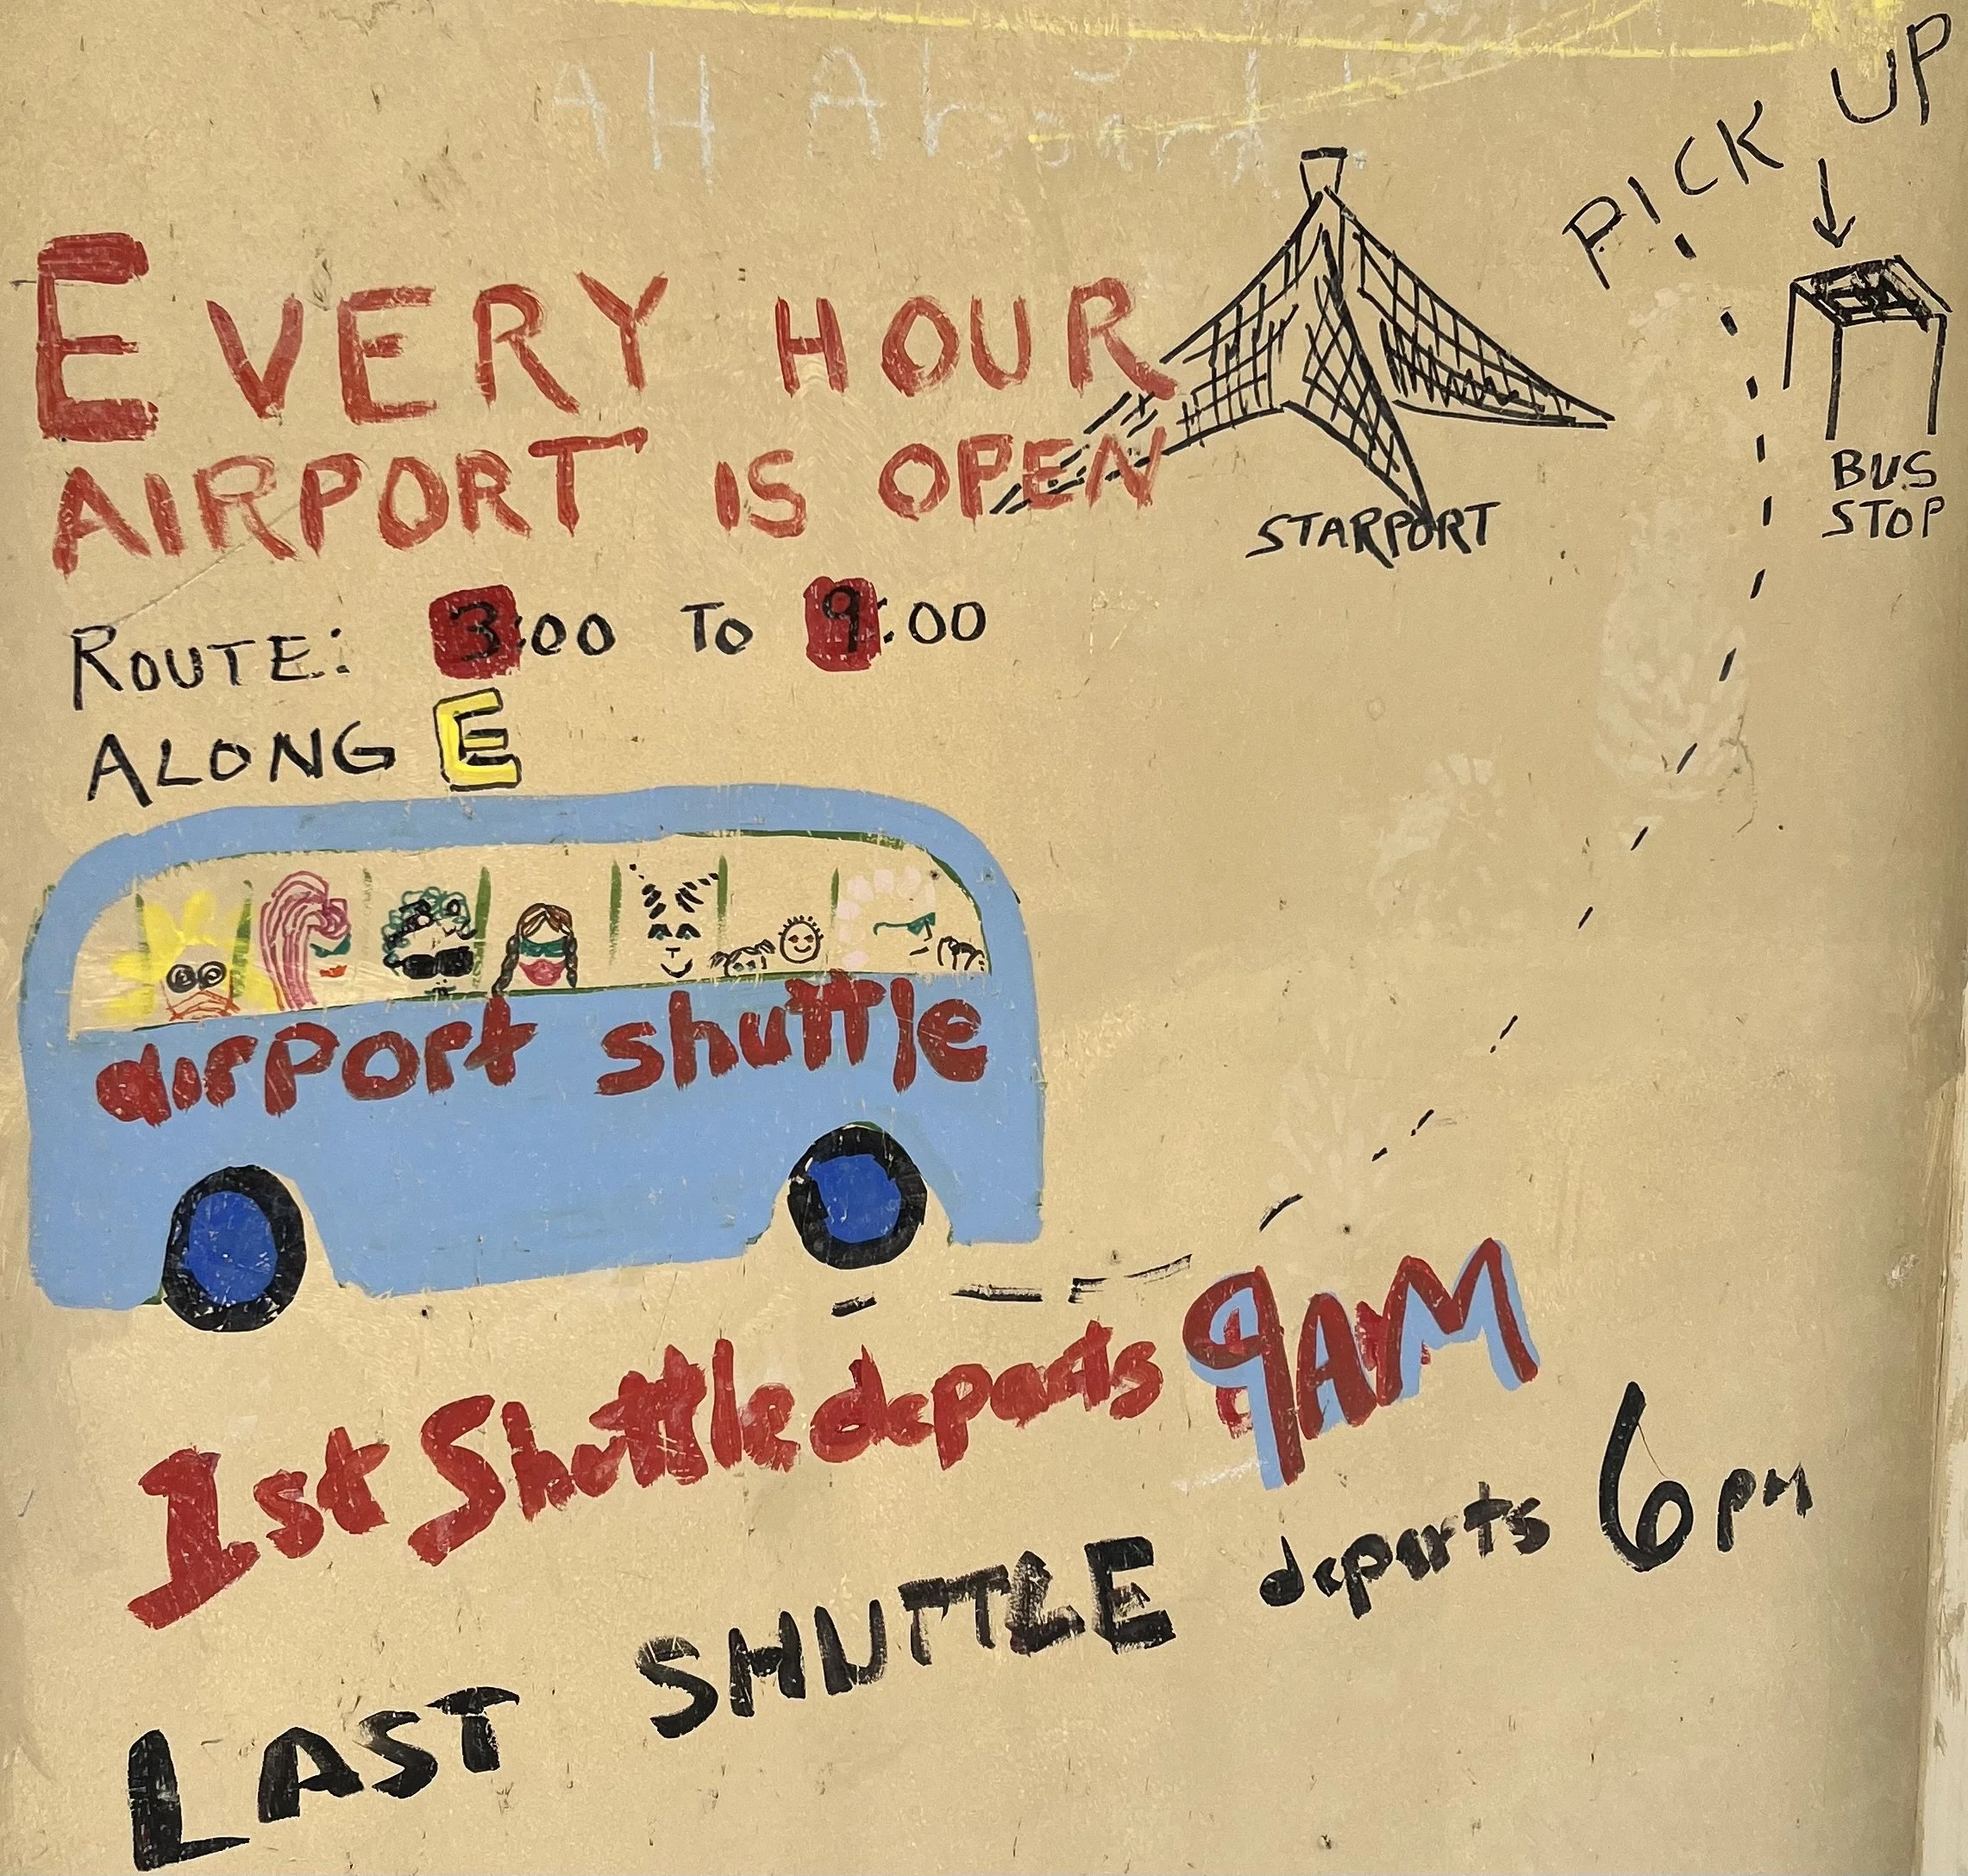 All Aboard
PICK UP
EVERY HOUR
AIRPORT IS OPEN
STARPORT
BUS
STOP
ROUTE: 3:00 TO 9:00
ALONG E
airport shuttle
1st Shuttle departs 9AM
LAST SHUTTLE departs 6pm